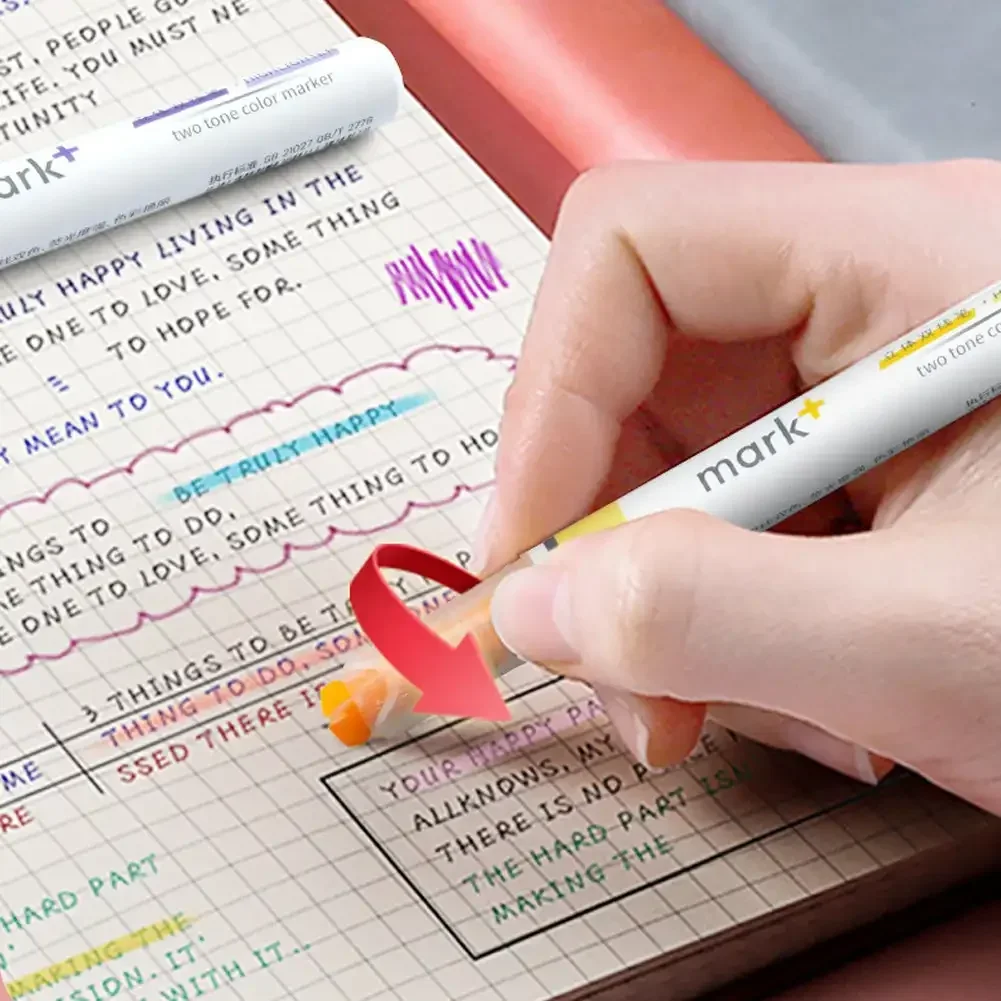 ST, PEOPLE GO
LIFE. YOU MUST NE
TUNITY
two tone color marker
ark+
执行标准 GB 21027 QB/T 2778
ULY HAPPY LIVING IN THE
E ONE TO LOVE, SOME THING
TO HOPE FOR.
Y MEAN TO YOU.
BE TRULY HAPPY
NGS TO
KE THING TO DO,
E ONE TO LOVE, SOME THING TO HO
mark+
two tone co
3 THINGS TO BE TR Y HAPP
THING TO DO, SOM ONE
SSED THERE IS
ME
RE
YOUR HAPPY PA
ALLKNOWS, MY
THERE IS NO P
THE HARD PART ISN
MAKING THE
HARD PART
MAKING THE
SION. IT'
WITH IT..